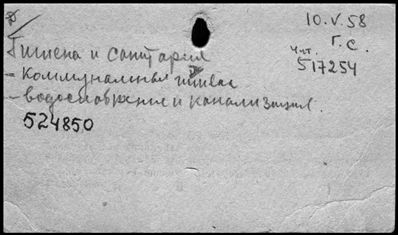 10.V.58
Г. С.
Чит.
517254
Гигиена и санитария
- коммунальная гигиена
- водоснабжение и канализация.
524850